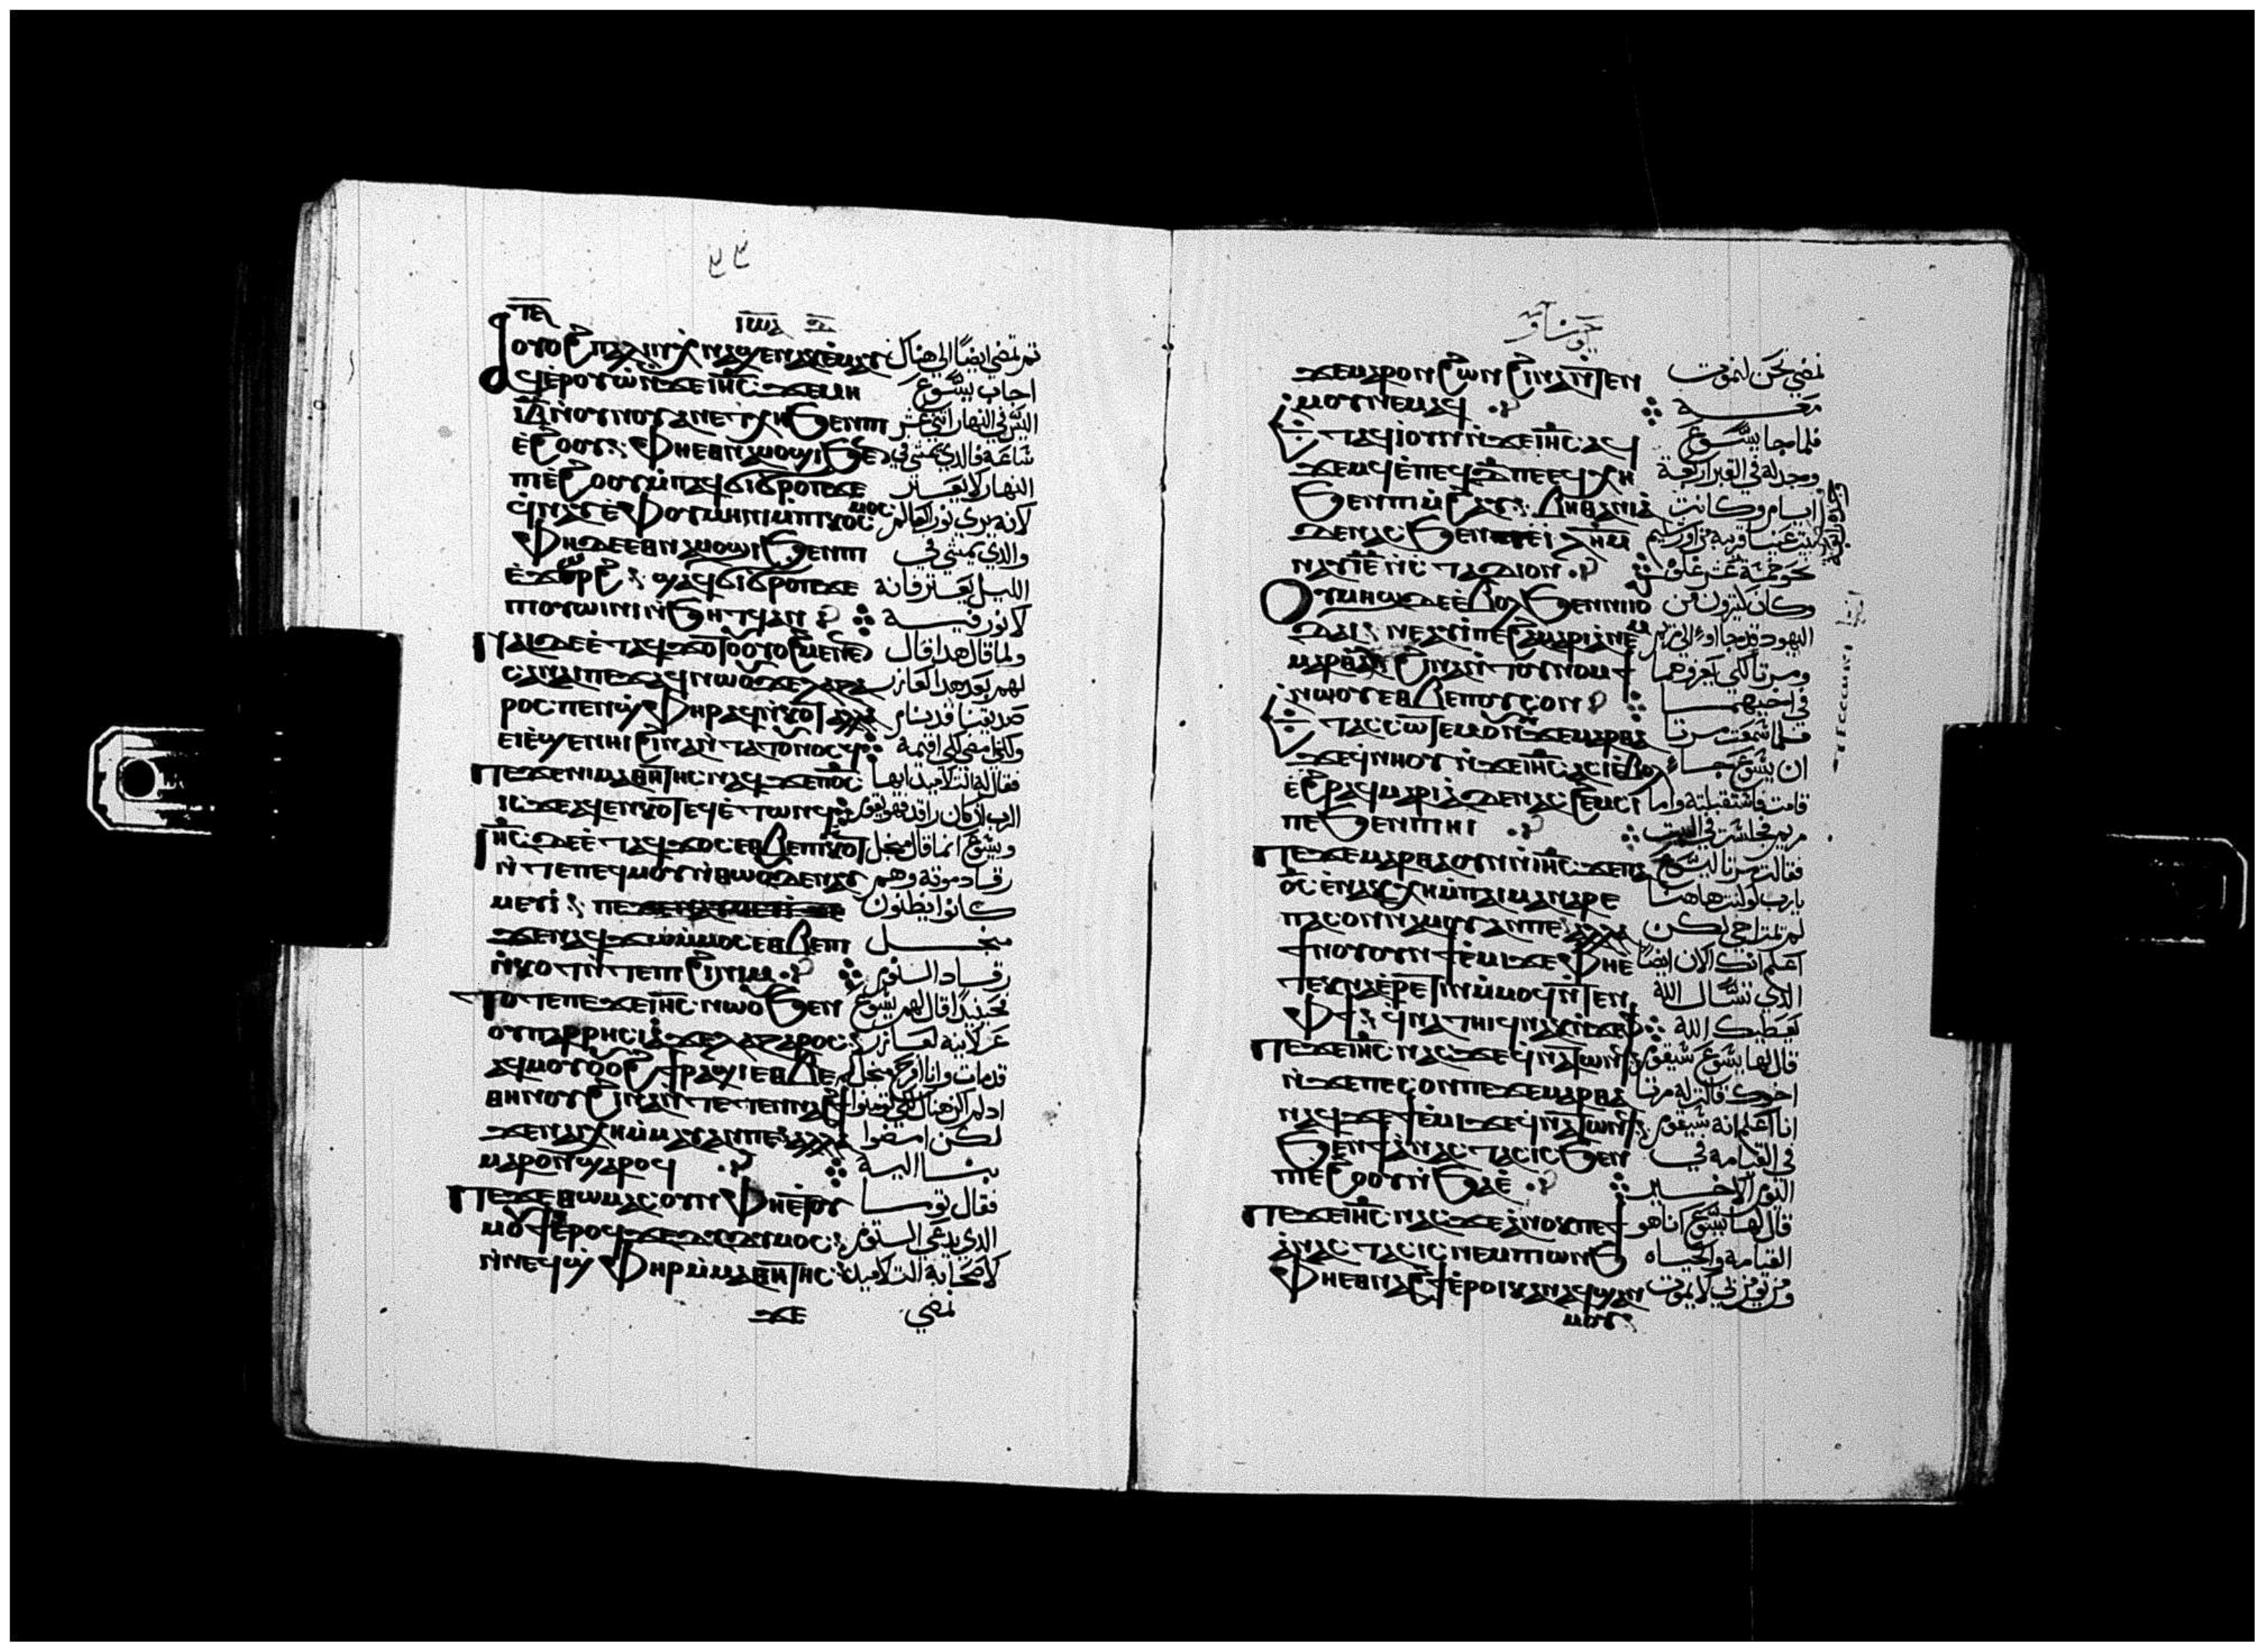 ⲓⲱⲁ
ⲟⲩⲟϩ ⲡⲁⲗⲓⲛ ⲭⲛⲁϣⲉⲛⲁⲕ ⲉⲙⲁⲩ ثم تمضي ايضًا الي هناك
ⲁϥⲉⲣⲟⲩⲱ ⲛϫⲉ ⲓⲏ̅ⲥ̅ ϫⲉ ⲙⲏ اجاب يسوع
ⲓ̅ⲃ̅ ⲛⲟⲩⲛⲟⲩ ⲁⲛ ⲉⲧⲭⲏ ϧⲉⲛ ⲡⲓ اليس في النهار اثني عشر
ⲉϩⲟⲟⲩ ⲫⲏ ⲉⲑⲛⲁⲙⲟϣⲓ ϧⲉⲛ ساعة فالذي يمشي في
ⲡⲓⲉϩⲟⲟⲩ ⲙⲡⲁϥϭⲓϭⲣⲟⲡ ϫⲉ النهار لا يعثر
ϥⲛⲁⲩ ⲉⲫⲟⲩⲱⲓⲛⲓ ⲙⲡⲓⲕⲟⲥⲙⲟⲥ لانه يري نور العالم
ⲫⲏ ⲇⲉ ⲉⲑⲛⲁⲙⲟϣⲓ ϧⲉⲛ ⲡⲓ والذي يمشي في
ⲉϫⲱⲣϩ ϣⲁϥϭⲓϭⲣⲟⲡ ϫⲉ الليل يعثر فانه
ⲡⲓⲟⲩⲱⲓⲛⲓ ⲛϧⲏⲧϥ ⲁⲛ لا نور فيه
ⲛⲁⲓ ⲇⲉ ⲉⲧⲁϥϫⲟⲧⲟⲩ ⲟⲩⲟϩ ⲙⲉⲛⲉⲛ ولما قال هذا قال
ⲥⲁ ⲛⲁⲓ ⲡⲉϫⲁϥ ⲛⲱⲟⲩ ϫⲉ ⲗⲁⲍⲁ لهم بعد هذا لعازر
ⲣⲟⲥ ⲡⲉⲛϣⲫⲏⲣ ⲁϥⲛⲕⲟⲧ ⲁⲗⲗⲁ صديقنا قد نام
ⲉⲓⲉϣⲉⲛⲏⲓ ϩⲓⲛⲁ ⲛⲧⲁⲧⲟⲩⲛⲟⲥϥ ولكني امضي لكي اقيمه
ⲡⲉϫⲉ ⲛⲓⲙⲁⲑⲏⲧⲏⲥ ⲛⲁϥ ϫⲉ ⲡⲟ̅ⲥ̅ فقال له التلاميذ ايها
ⲓⲥϫⲉ ⲁϥⲉⲛⲕⲟⲧ ⲉϥⲉⲧⲱⲛϥ الرب ان كان راقد فهو يقوم
ⲓⲏ̅ⲥ̅ ⲇⲉ ⲉⲧⲁϥϫⲟⲥ ⲉⲑⲃⲉ ⲡⲓⲛⲕⲟⲧ ويسوع انما قال من اجل
ⲛⲧⲉ ⲡⲉϥⲙⲟⲩ ⲛⲑⲱⲟⲩ ⲇⲉ ⲛⲁⲩ رقاد موته وهم
ⲙⲉⲩⲓ كانوا يظنون
ϫⲉ ⲛⲁϥϫⲱ ⲙⲙⲟⲥ ⲉⲑⲃⲉ ⲡⲓ من اجل
ⲛⲕⲟⲧ ⲛⲧⲉ ⲡⲓϩⲓⲛⲓⲙ رقاد النوم
ⲧⲟⲧⲉ ⲡⲉϫⲉ ⲓⲏ̅ⲥ̅ ⲛⲱⲟⲩ ϧⲉⲛ فحينيذ قال لهم يسوع
ⲟⲩⲡⲁⲣⲣⲏⲥⲓⲁ ϫⲉ ⲗⲁⲍⲁⲣⲟⲥ علانيه لعازر
ⲁϥⲙⲟⲩ ⲟⲩⲟϩ ϯⲣⲁϣⲓ ⲉⲑⲃⲉ قد مات وانا افرح من اجلكم
ⲑⲏⲛⲟⲩ ϩⲓⲛⲁ ⲛⲧⲉⲧⲉⲛⲛⲁϩϯ اذ لم اكن هناك لكي تومنوا
ϫⲉ ⲛⲁⲓⲭⲏ ⲙⲙⲁⲩ ⲁⲛ ⲡⲉ ⲁⲗⲗⲁ لكن امضوا
ⲙⲁⲣⲟⲛ ϣⲁⲣⲟϥ بنا اليه
ⲡⲉϫⲉ ⲑⲱⲙⲁⲥ ⲟⲩⲛ ⲫⲏ ⲉⲧⲟⲩ فقال توما
ⲙⲟⲩϯ ⲉⲣⲟϥ ϫⲉ ⲇⲓⲇⲩⲙⲟⲥ الذي يدعي التوم
ⲛⲛⲉϥϣⲫⲏⲣ ⲙⲙⲁⲑⲏⲧⲏⲥ لاصحابه التلاميذ
ϫⲉ نمضي
يوحنا
ϫⲉ ⲙⲁⲣⲟⲛ ϩⲱⲛ ϩⲓⲛⲁ ⲛⲧⲉⲛ نمضي نحن لنموت
ⲙⲟⲩ ⲛⲉⲙⲁϥ معه
ⲉⲧⲁϥⲓ ⲟⲩⲛ ⲛϫⲉ ⲓⲏ̅ⲥ̅ ⲁϥ فلما جا يسوع
ϫⲉⲙϥ ⲉⲡⲉϥⲇ̅ ⲡⲉ ⲉϥⲭⲏ وجد له في القبر اربعة
ϧⲉⲛ ⲡⲓⲙϩⲁⲩ ⲃⲏⲑⲁⲛⲓⲁ ايام وكانت
ⲇⲉ ⲛⲁⲥϧⲉⲛⲧ ⲉⲓⲗ̅ⲏ̅ⲙ̅ بيت عنيا قريبه من اورشليم
ⲛⲁⲩ ⲓ̅ⲉ̅ ⲛⲥⲧⲁⲇⲓⲟⲛ نحو خمسة عشر غلوه
ⲟⲩⲙⲏϣ ⲇⲉ ⲉⲃⲟⲗ ϧⲉⲛ ⲛⲓⲓⲟⲩ وكان كثيرون من
ⲇⲁⲓ ⲛⲉⲁⲩⲓ ⲡⲉ ϩⲁ ⲙⲁⲣⲓⲁ ⲛⲉⲙ اليهود قد جاوا الي مريم
ⲙⲁⲣⲑⲁ ϩⲓⲛⲁ ⲛⲧⲟⲩⲛⲟⲙϯ ومرتا لكي يعزوهما
ⲛⲱⲟⲩ ⲉⲑⲃⲉ ⲡⲟⲩⲥⲟⲛ في اخيهما
ⲉⲧⲁⲥⲥⲱⲧⲉⲙ ⲟⲩⲛ ϫⲉ ⲙⲁⲣⲑⲁ فلما سمعت مرتا
ϫⲉ ϥⲛⲏⲟⲩ ⲛϫⲉ ⲓⲏ̅ⲥ̅ ⲁⲥⲓ ⲉⲃⲟⲗ ان يسوع جاء
ⲉϩⲣⲁϥ ⲙⲁⲣⲓⲁ ⲇⲉ ⲛⲁⲥϩⲉⲙⲥⲓ قامت فاستقبلته واما
ⲡⲉ ϧⲉⲛ ⲡⲓⲏⲓ مريم فجلست في البيت
ⲡⲉϫⲉ ⲙⲁⲣⲑⲁ ⲟⲩⲛ ⲛⲓⲏ̅ⲥ̅ ϫⲉ ⲡ فقالت مرتا ليسوع
ⲟ̅ⲥ̅ ⲉⲛⲁⲕⲭⲏ ⲙⲡⲁⲓⲙⲁ ⲛⲁⲣⲉ يارب لو كنت هاهنا
ⲡⲁⲥⲟⲛ ⲛⲁⲙⲟⲩ ⲁⲛ ⲡⲉ ⲁⲗⲗⲁ لم يمت اخي لكن
ϯⲛⲟⲩ ⲟⲩⲛ ϯⲉⲙⲓ ϫⲉ ⲫⲏ ⲉ اعلم انك الان ايضًا
ⲧⲉⲕⲛⲁⲉⲣⲉⲧⲓⲛ ⲙⲙⲟϥ ⲛⲧⲉⲛ الذي تسال الله
ⲫϯ ϥⲛⲁⲧⲏⲓϥ ⲛⲁⲕ ⲛϫⲉ ⲫϯ يعطيك الله
ⲡⲉϫⲉ ⲓⲏ̅ⲥ̅ ⲛⲁⲥ ϫⲉ ϥⲛⲁⲧⲱⲛϥ قال لها يسوع سيقوم
ⲛϫⲉ ⲡⲉⲥⲟⲛ ⲡⲉϫⲉ ⲙⲁⲣⲑⲁ اخوك قالت له مرتا
ⲛⲁϥ ϫⲉ ϯⲉⲙⲓ ϫⲉ ϥⲛⲁⲧⲱⲛϥ انا اعلم انه سيقوم
ϧⲉⲛ ϯⲁⲛⲁⲥⲧⲁⲥⲓⲥ ϧⲉⲛ في القيامه في
ⲡⲓⲉϩⲟⲟⲩ ⲛϧⲁⲉ اليوم الاخير
ⲡⲉϫⲉ ⲓⲏ̅ⲥ̅ ⲛⲁⲥ ϫⲉ ⲁⲛⲟⲕ ⲡⲉ ϯ قال لها يسوع انا هو
ⲁⲛⲁⲥⲧⲁⲥⲓⲥ ⲛⲉⲙ ⲡⲓⲱⲛϧ القيامه والحياه
ⲫⲏ ⲉⲑⲛⲁϩϯ ⲉⲣⲟⲓ ⲕⲁⲛ ⲁϥϣⲁⲛ ومن يومن بي لا يموت
ⲙⲟⲩ